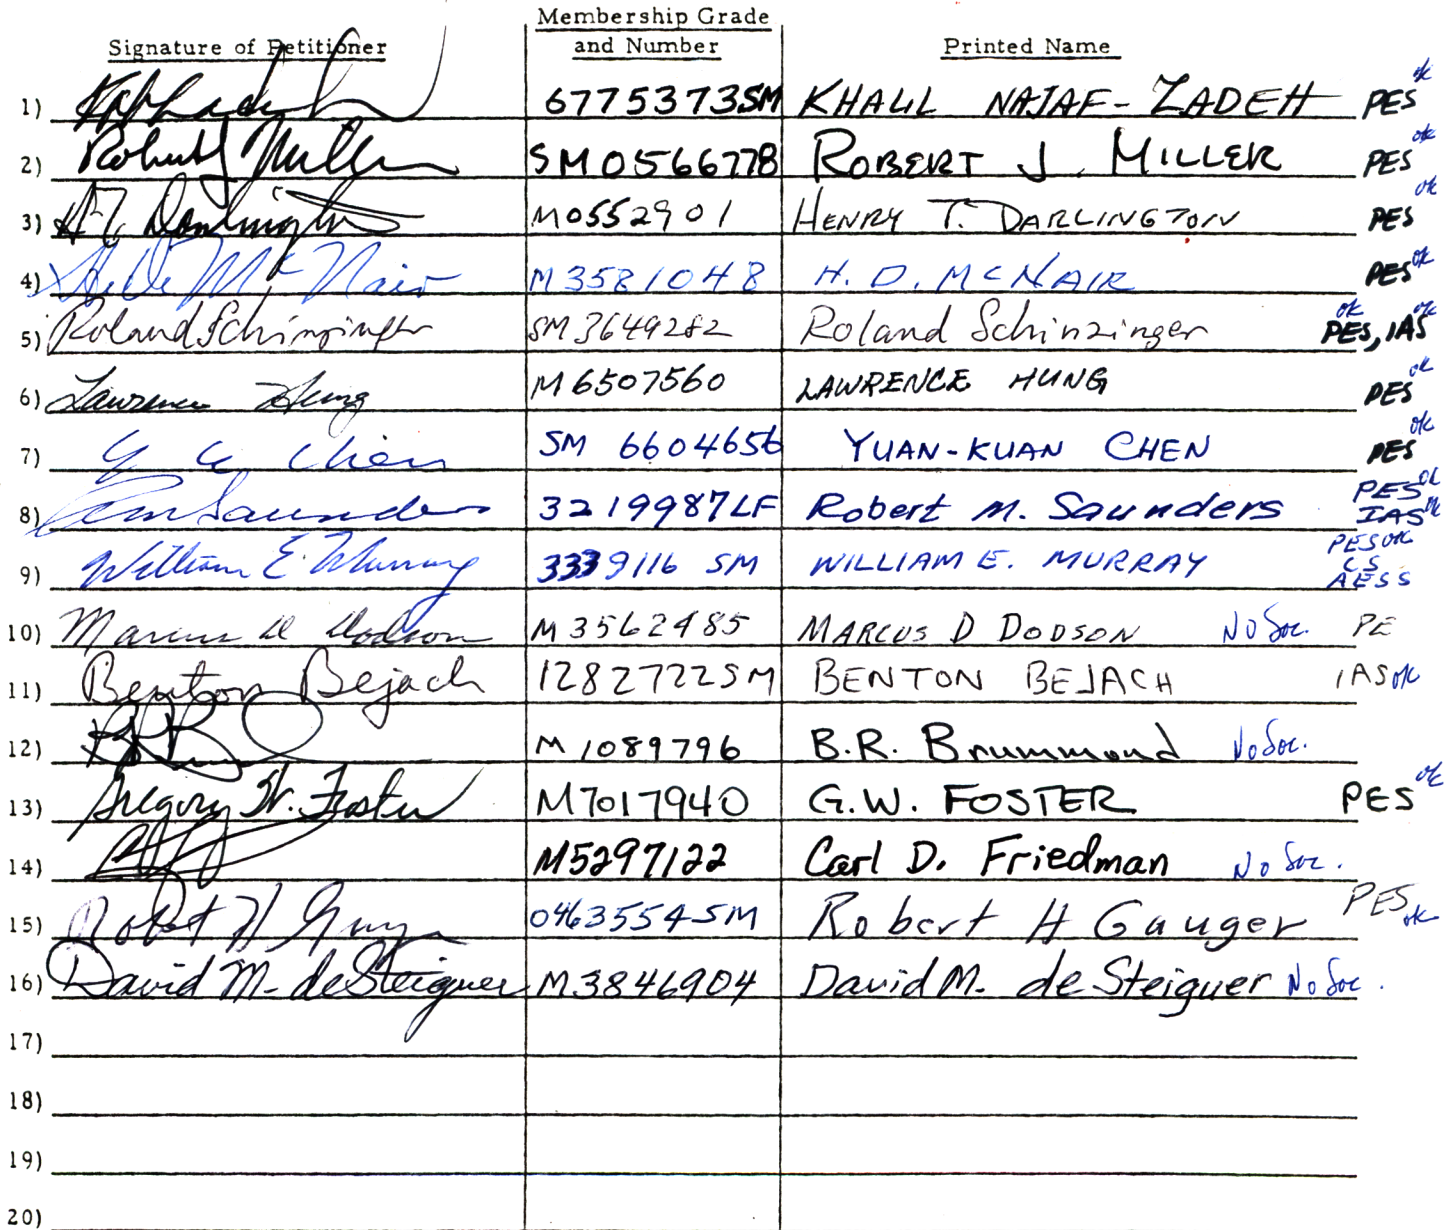 Membership Grade
Signature of Petitioner and Number Printed Name
1) 6775373SM KHALIL NAJAF-ZADEH PES ok
2) Robert J Miller SM0566778 ROBERT J. MILLER PES ok
3) H.T. Darlington M0552901 HENRY T. DARLINGTON PES ok
4) McNair M3581048 H. D. MCNAIR PES ok
5) Roland Schinzinger SM3649282 Roland Schinzinger PES, IAS ok ok
6) Lawrence Hung M6507560 LAWRENCE HUNG PES ok
7) Y K Chen SM 6604656 YUAN-KUAN CHEN PES ok
8) RM Saunders 3219987LF Robert M. Saunders PES ok IAS ok
9) William E. Murray 3339116 SM WILLIAM E. MURRAY PES ok CS AESS
10) Marcus D Dodson M3562485 MARCUS D DODSON No Soc. PE
11) Benton Bejach 1282722SM BENTON BEJACH IAS ok
12) M1089796 B.R. Brummond No Soc.
13) Gregory W. Foster M7017940 G.W. FOSTER PES ok
14) M5297122 Carl D. Friedman No Soc.
15) Robert H Gauger 0463554SM Robert H Gauger PES ok
16) David M. de Steiguer M3846904 David M. de Steiguer No Soc.
17)
18)
19)
20)